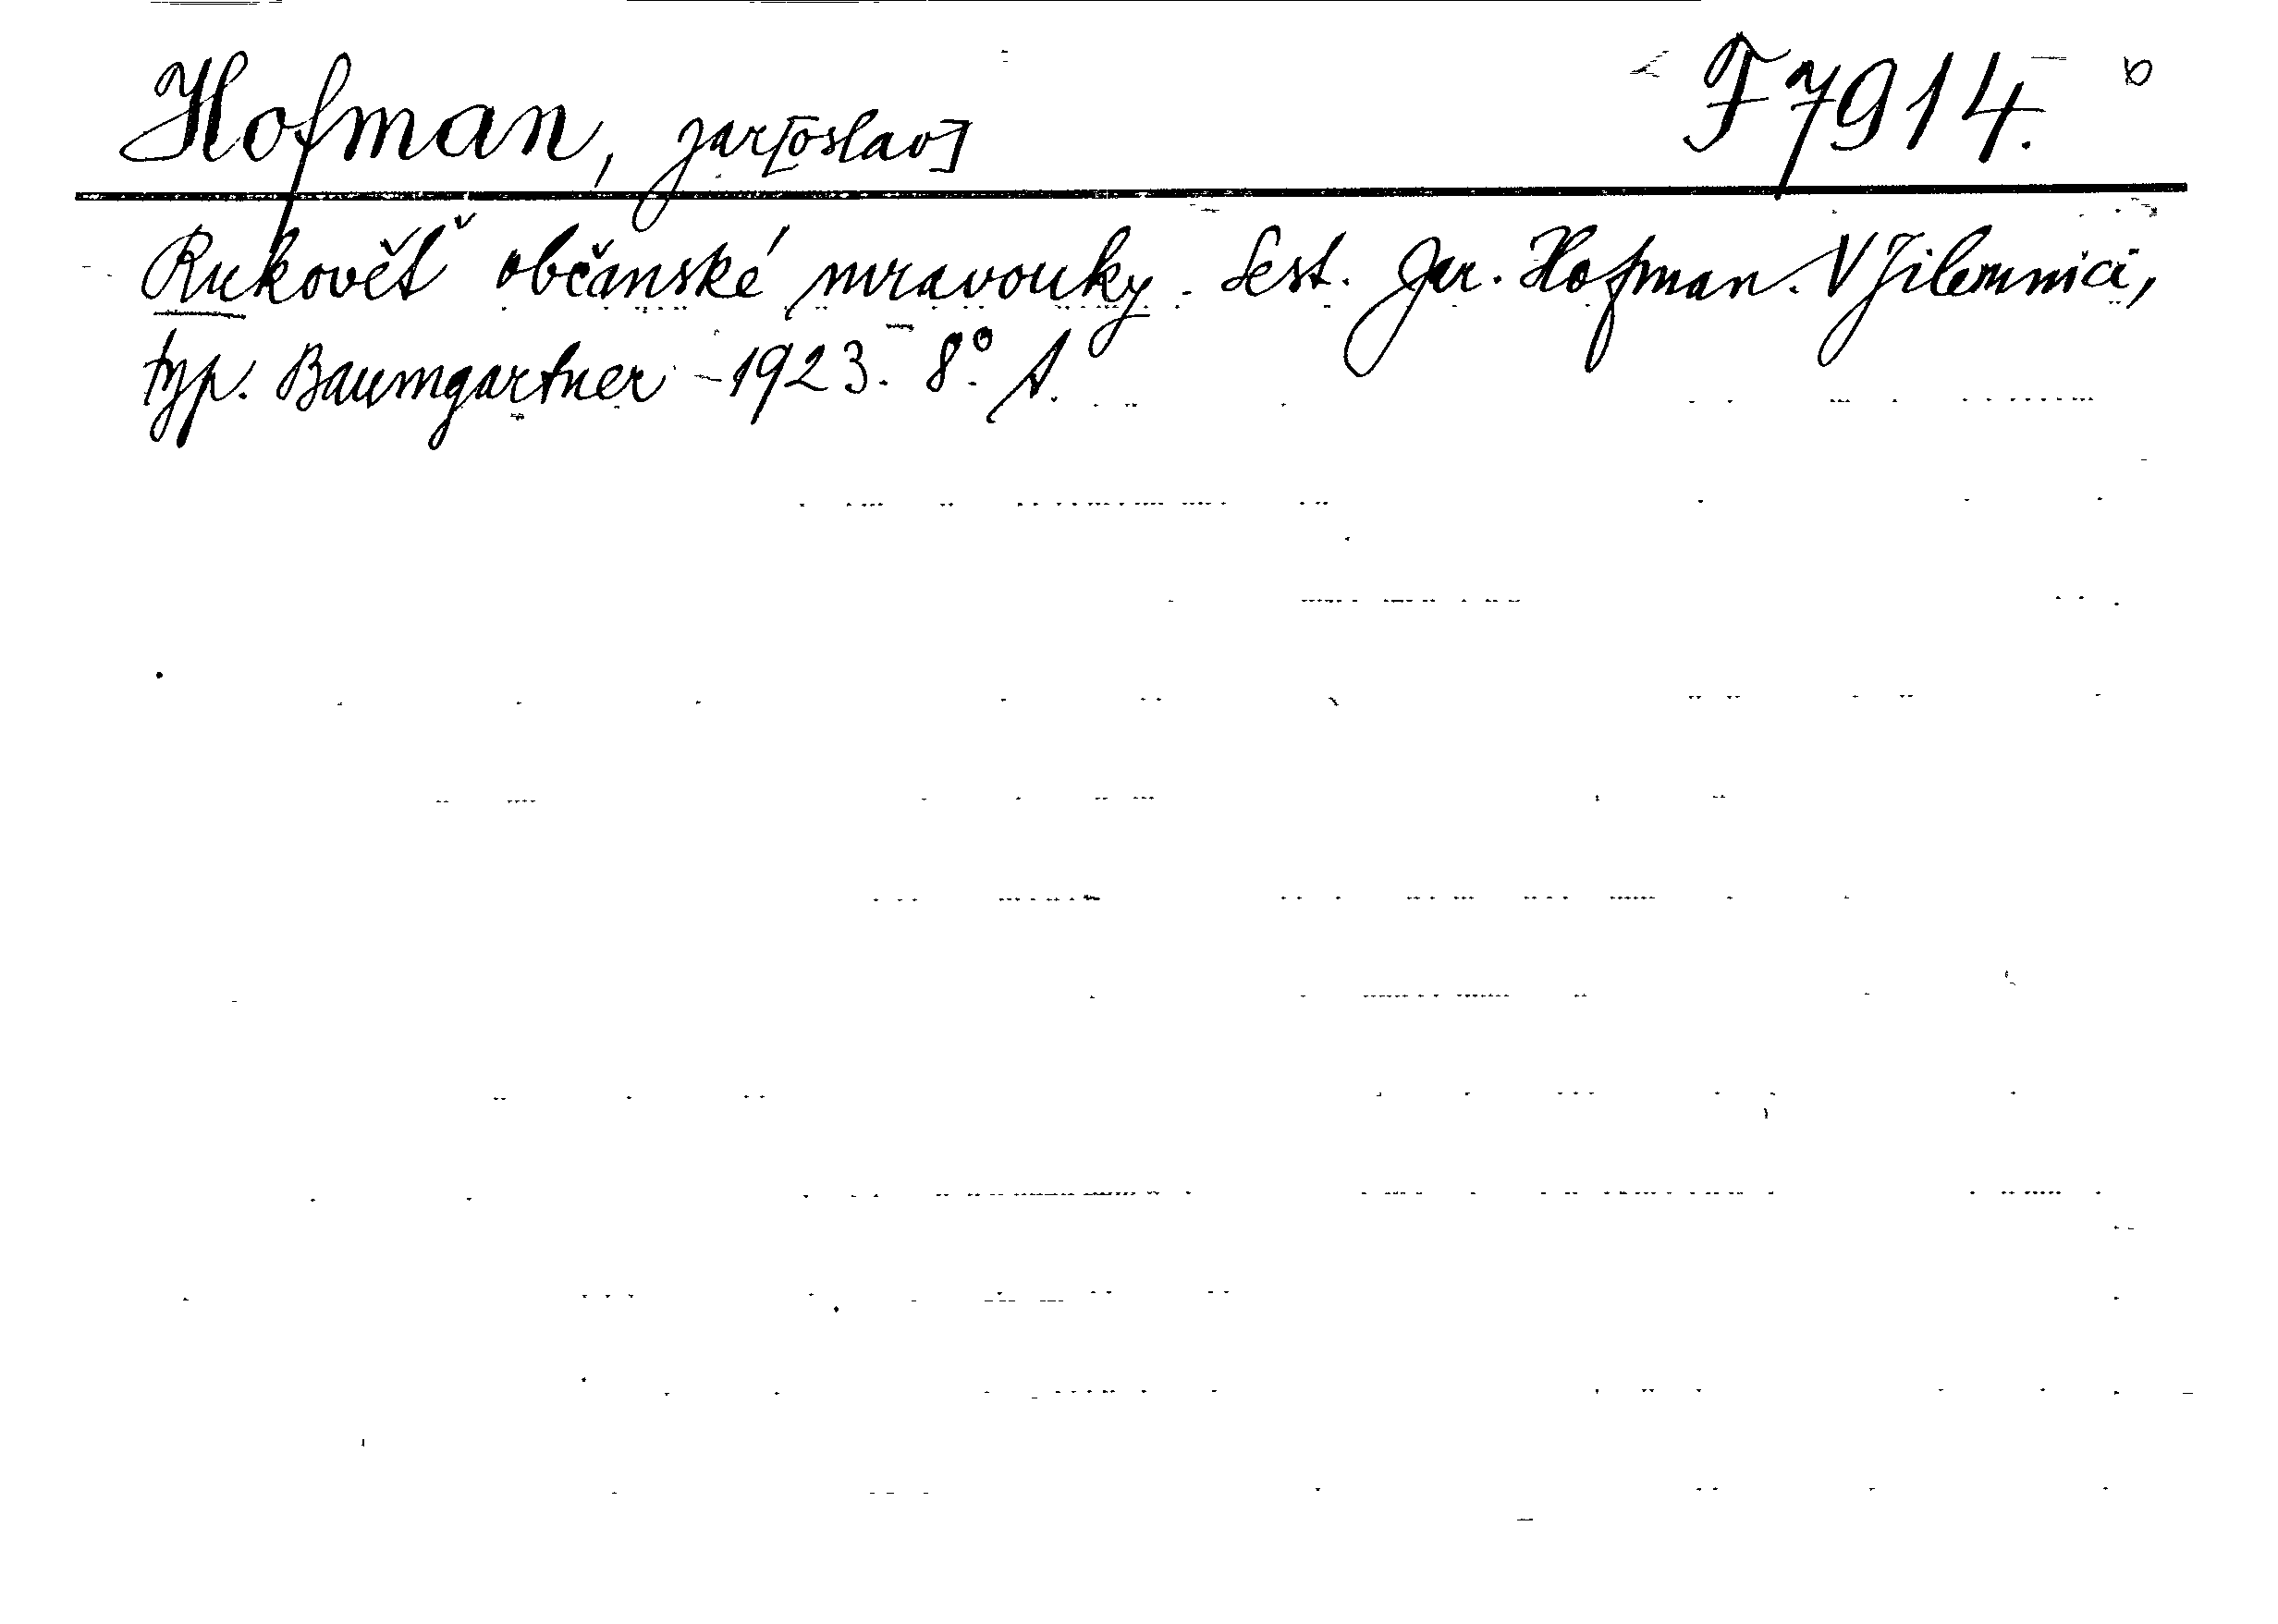 Hofman, Jar[oslav] F 7914. b
Rukověť občanské mravouky. Sest. Jar. Hofman. V Jilemnici,
typ. Baumgartner - 1923. 8°. A.